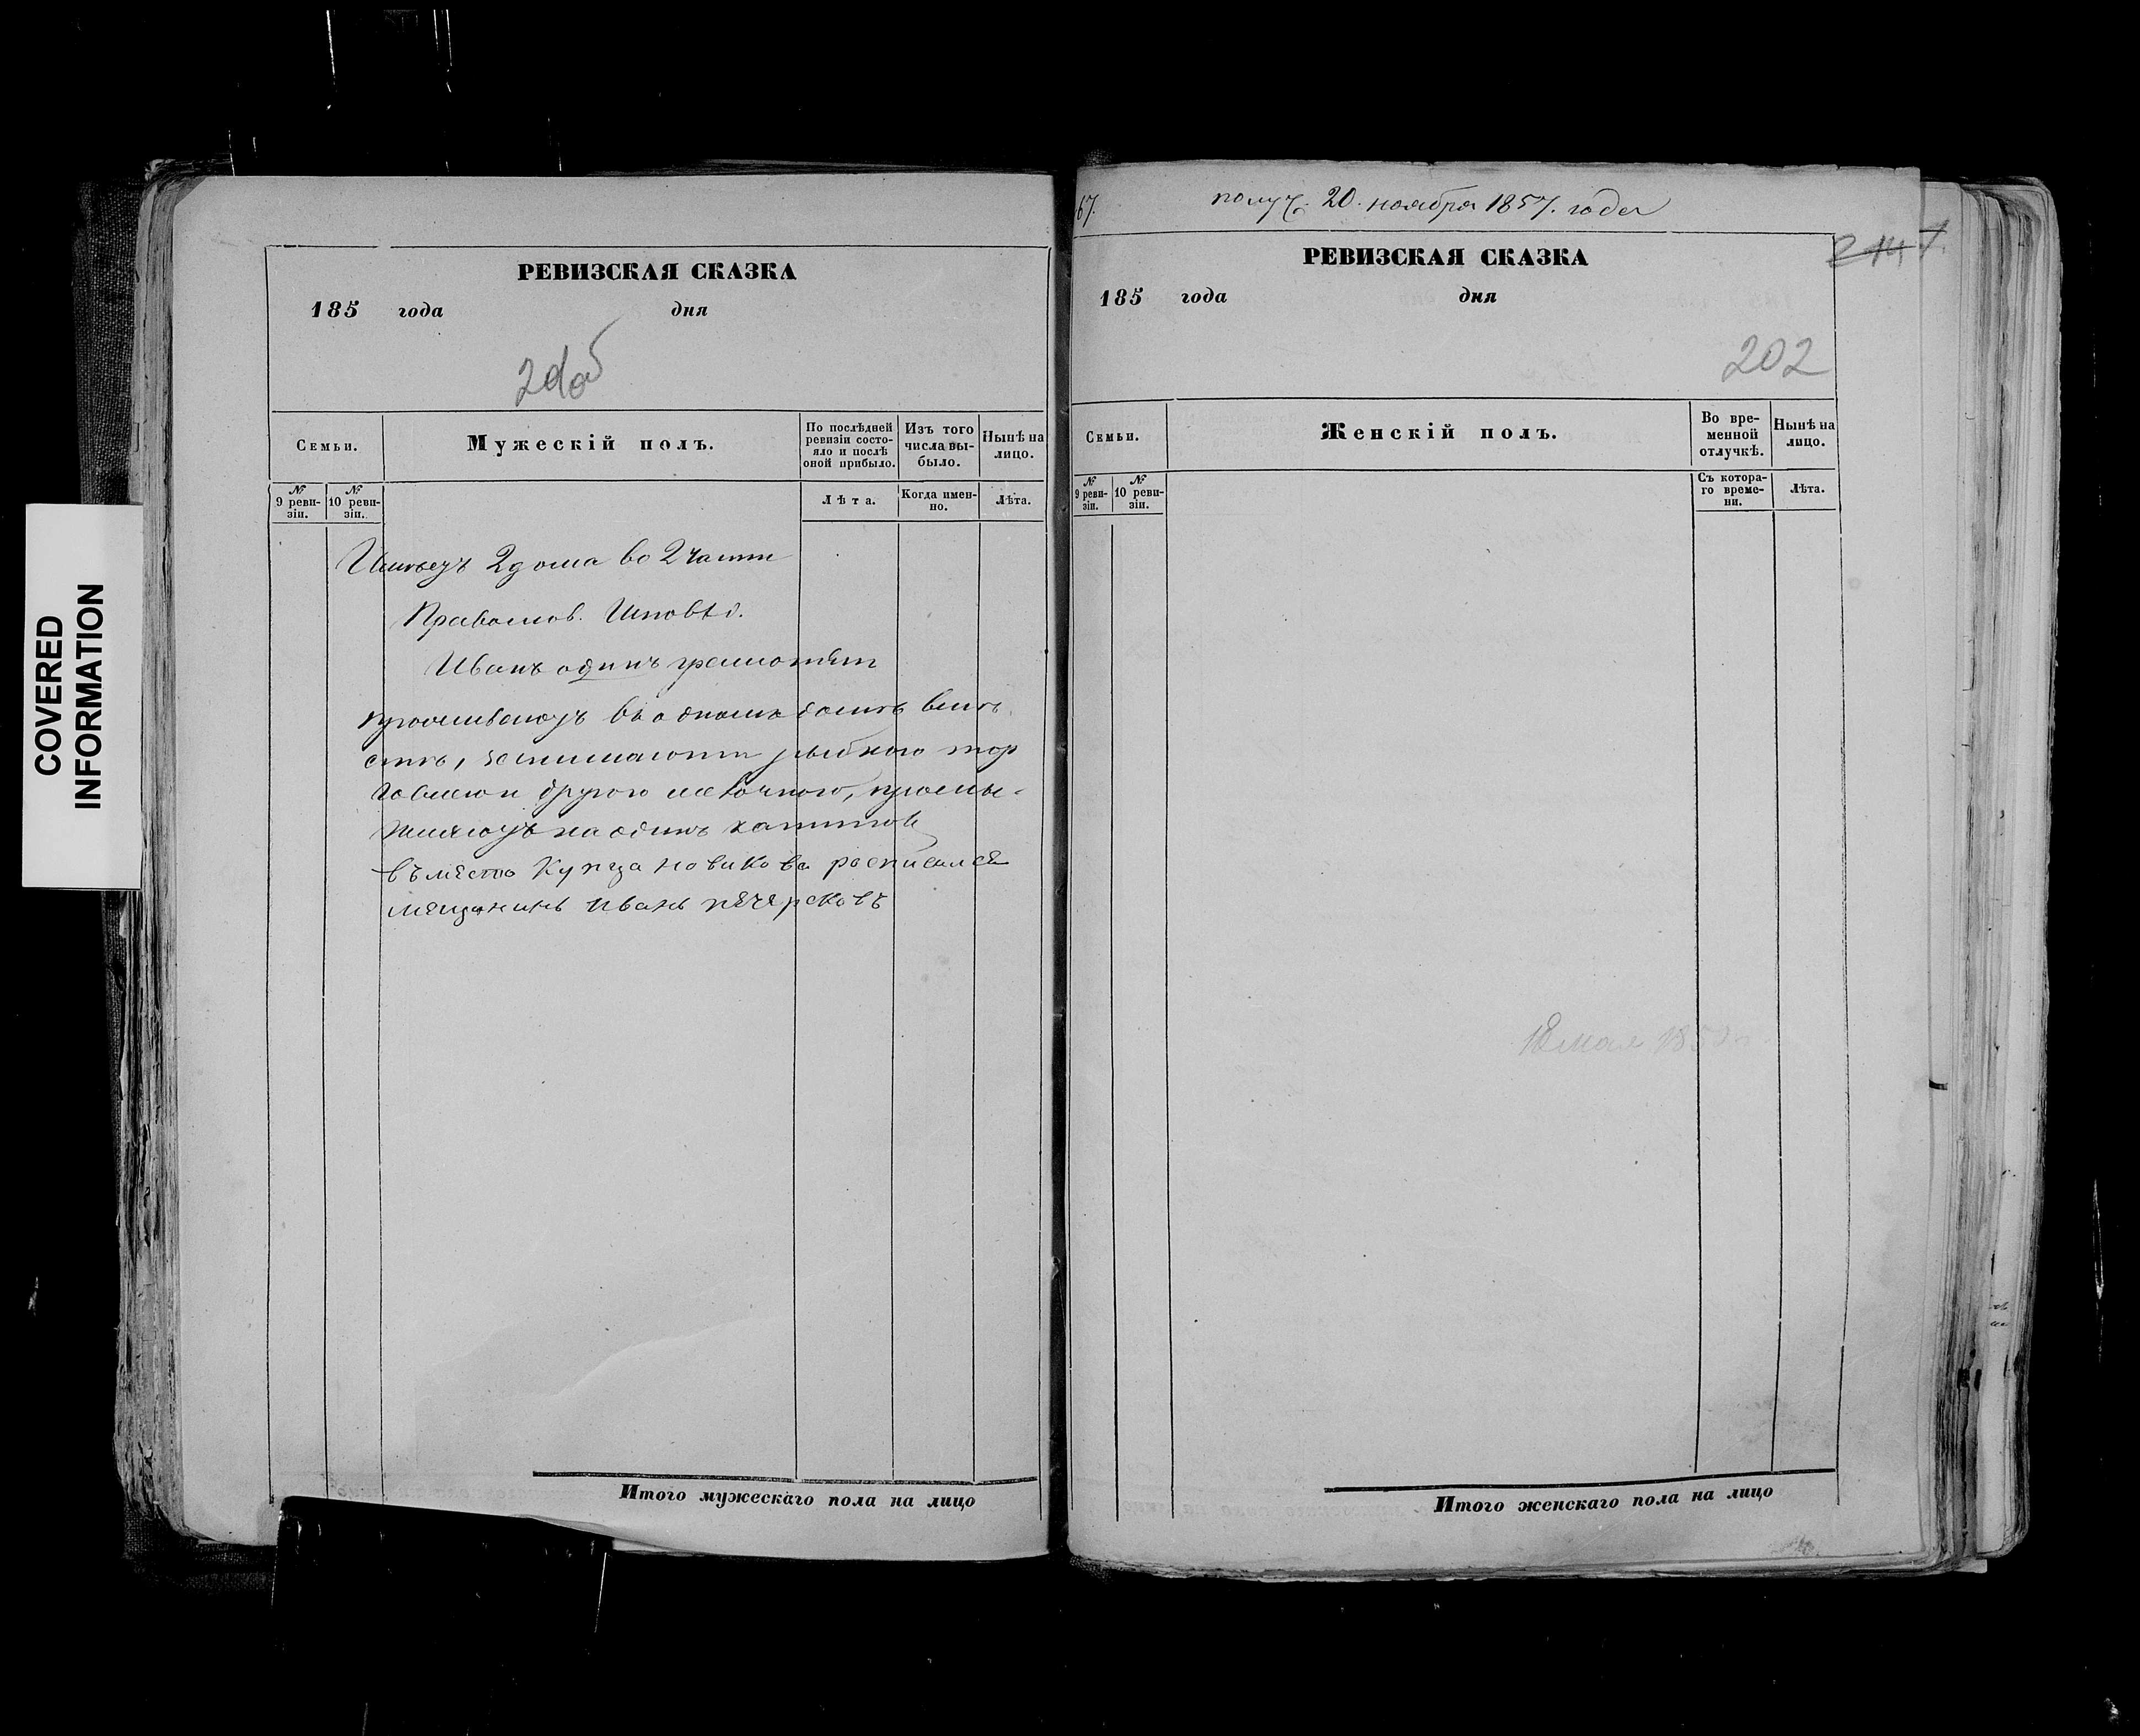 COVERED
INFORMATION
РЕВИЗСКАЯ СКАЗКА
185 года дня
Семьи.
Мужескій полъ.
По послѣдней ревизіи состояло и послѣ оной прибыло.
Изъ того числа выбыло.
Нынѣ на лицо.
№ 9 ревизіи.
№ 10 ревизіи.
Лѣта.
Когда именно.
Лѣта.
2 дома во 2 части
Православ. Исповѣд.
Иванъ одинъ грамотѣн
проживаютъ въ одномъ домѣ вмѣ
стѣ, занимаются рыбною тор
говлею и другою лавочною, промы-
шляютъ на одинъ капитал
въместо Купца новикова росписался
мещанинъ иванъ печерсковъ
Итого мужескаго пола на лицо
67.
получ. 20. ноября 1857. года
РЕВИЗСКАЯ СКАЗКА
185 года дня
202
Семьи.
Женскій полъ.
Во временной отлучкѣ.
Нынѣ на лицо.
№ 9 ревизіи.
№ 10 ревизіи.
Съ котораго времени.
Лѣта.
18 мая
Итого женскаго пола на лицо